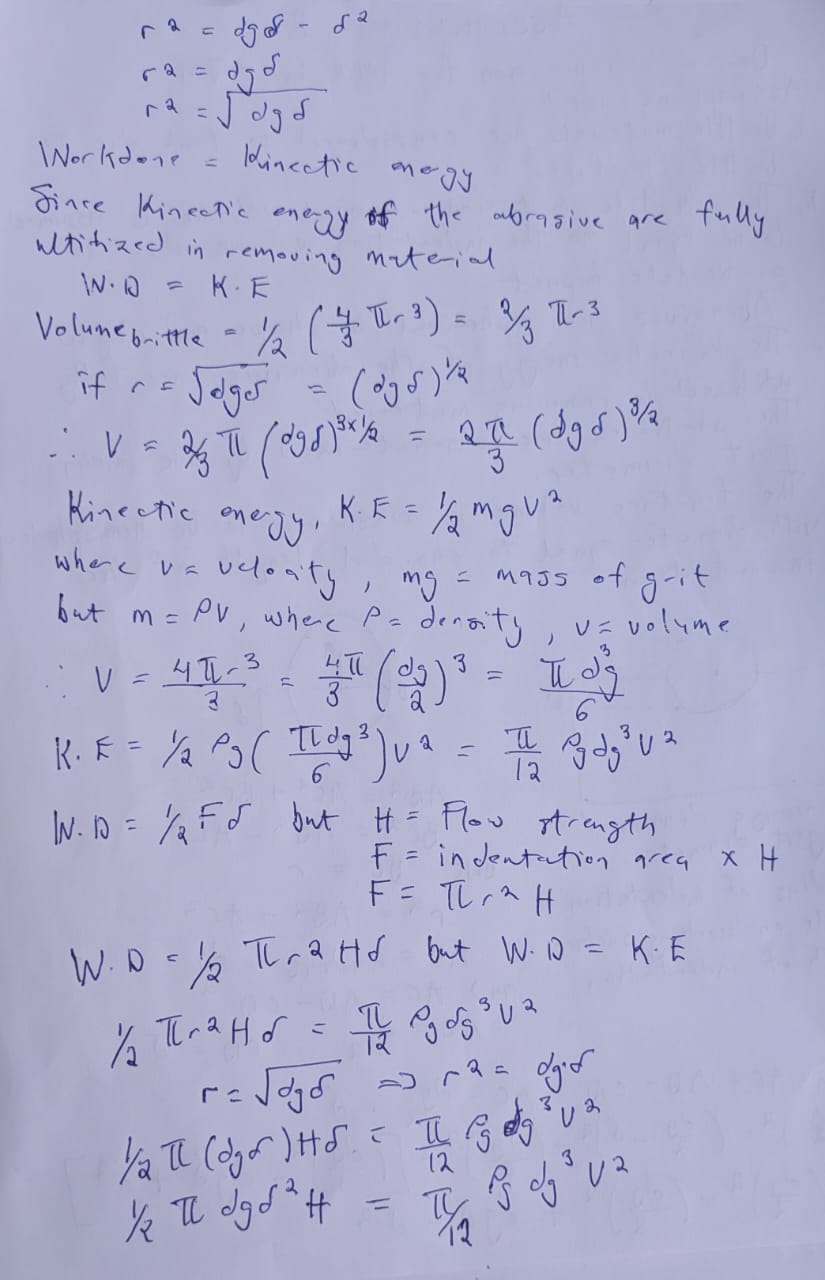 r² = dgδ - δ²
r² = dgδ
r² = √dgδ
Workdone = Kinectic energy
Since Kinectic energy of the abrasive are fully
ultitized in removing material
W.D = K.E
Volume brittle = ½ (4/3 πr³) = 2/3 πr³
if r = √dgδ = (dgδ)^½
∴ V = 2/3 π (dgδ)^3×½ = 2π/3 (dgδ)^3/2
Kinectic energy, K.E = ½ mgv²
where v = velocity, mg = mass of grit
but m = ρv, where ρ = density, v = volume
∴ V = 4πr³/3 = 4π/3 (dg/2)³ = πdg³/6
K.E = ½ ρg (πdg³/6) v² = π/12 ρgdg³v²
W.D = ½ Fδ but H = Flow strength
F = indentation area x H
F = πr²H
W.D = ½ πr²Hδ but W.D = K.E
½ πr²Hδ = π/12 ρgdg³v²
r = √dgδ => r² = dg.δ
½ π (dgδ)Hδ = π/12 ρgdg³v²
½ π dgδ²H = π/12 ρgdg³v²